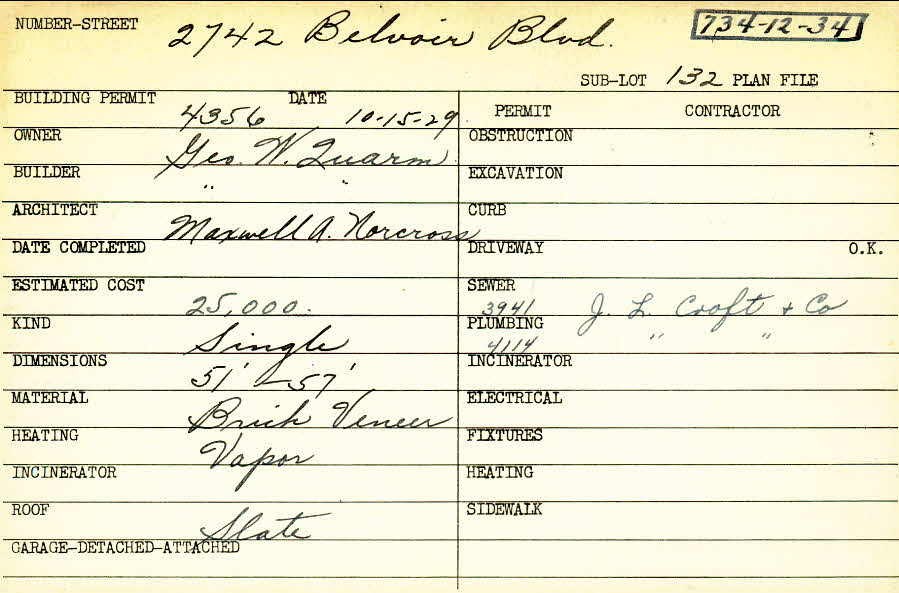 NUMBER-STREET 2742 Belvoir Blvd. 734-12-34
SUB-LOT 132 PLAN FILE
BUILDING PERMIT 4356 DATE 10-15-29
PERMIT CONTRACTOR
OWNER Geo. W. Quarm
OBSTRUCTION
BUILDER " "
EXCAVATION
ARCHITECT Maxwell A. Norcross
CURB
DATE COMPLETED
DRIVEWAY O.K.
ESTIMATED COST 25,000.
SEWER 3941 J. L. Croft & Co
KIND Single
PLUMBING 4114 " "
DIMENSIONS 51' - 57'
INCINERATOR
MATERIAL Brick Veneer
ELECTRICAL
HEATING Vapor
FIXTURES
INCINERATOR
HEATING
ROOF Slate
SIDEWALK
GARAGE-DETACHED-ATTACHED